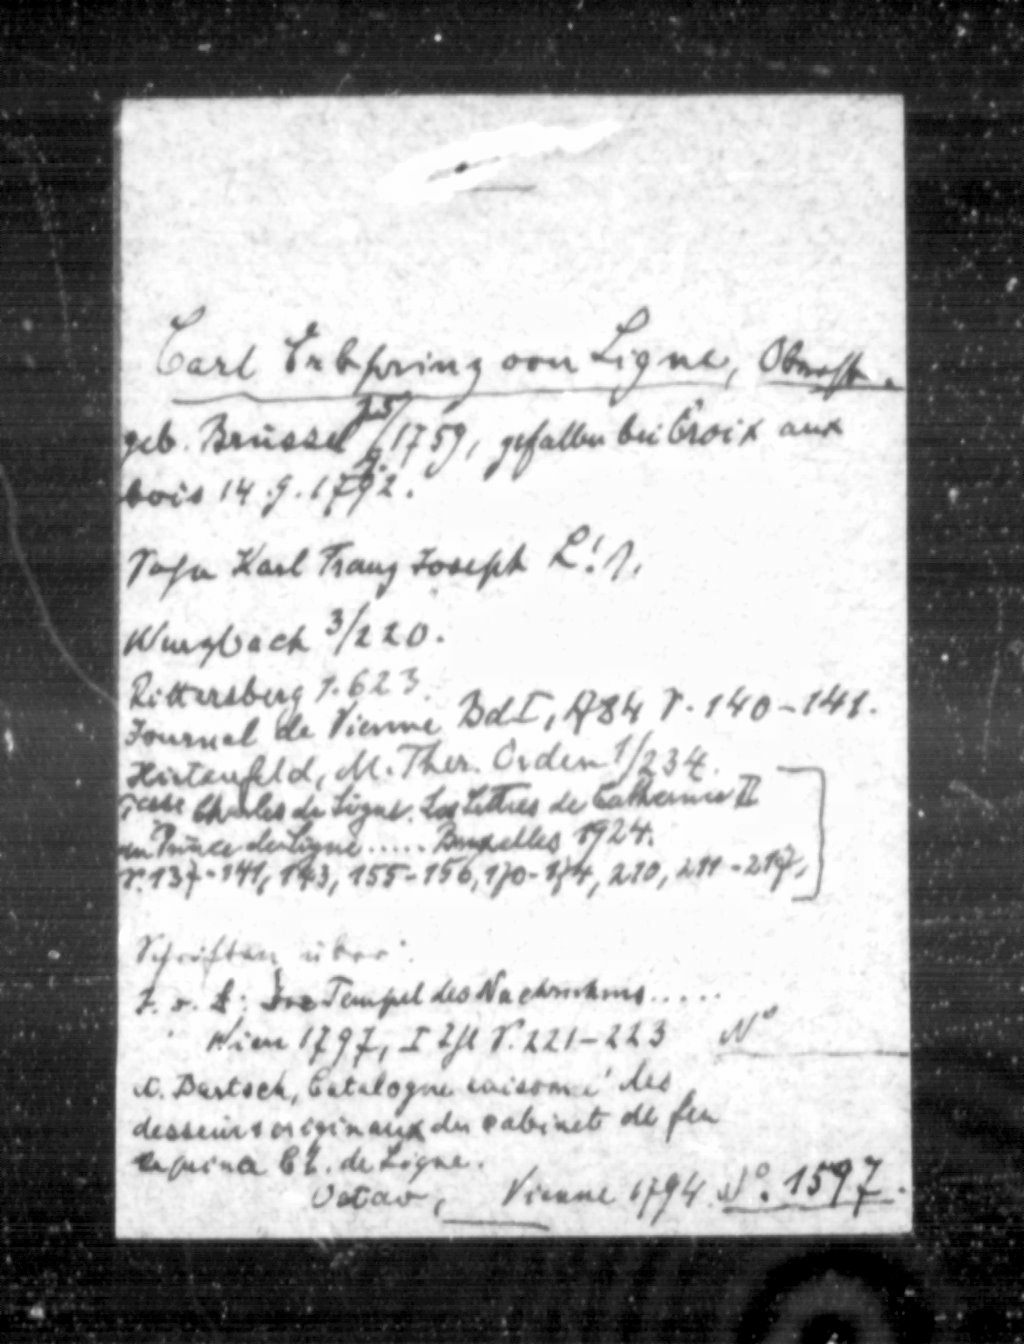 Carl Erbprinz von Ligne, Oberst.
geb. Brüssel 25/9. 1759, gefallen bei Croix aux
bois 14.9.1792.
Sohn Karl Franz Joseph L!s.
Wurzbach 3/220.
Rittersberg S. 623.
Journal de Vienne Bd I, 1784 S. 140-141.
Hirtenfeld, M. Ther. Orden 1/234.
Charles de Ligne. Les Lettres de Catherine II
au Prince de Ligne ..... Bruxelles 1924.
S. 137-141, 143, 155-156, 170-174, 210, 211-217,
Schriften über:
F. v. L: Der Tempel des Nachruhms .....
Wien 1797, I Thl S. 221-223 No
A. Bartsch, Catalogue raisonné des
desseins originaux du cabinet de feu
le prince Ch. de Ligne.
Octav, Vienne 1794. No. 1597.